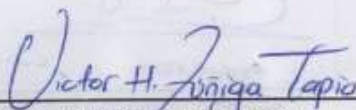 Victor H. Zúñiga Tapia